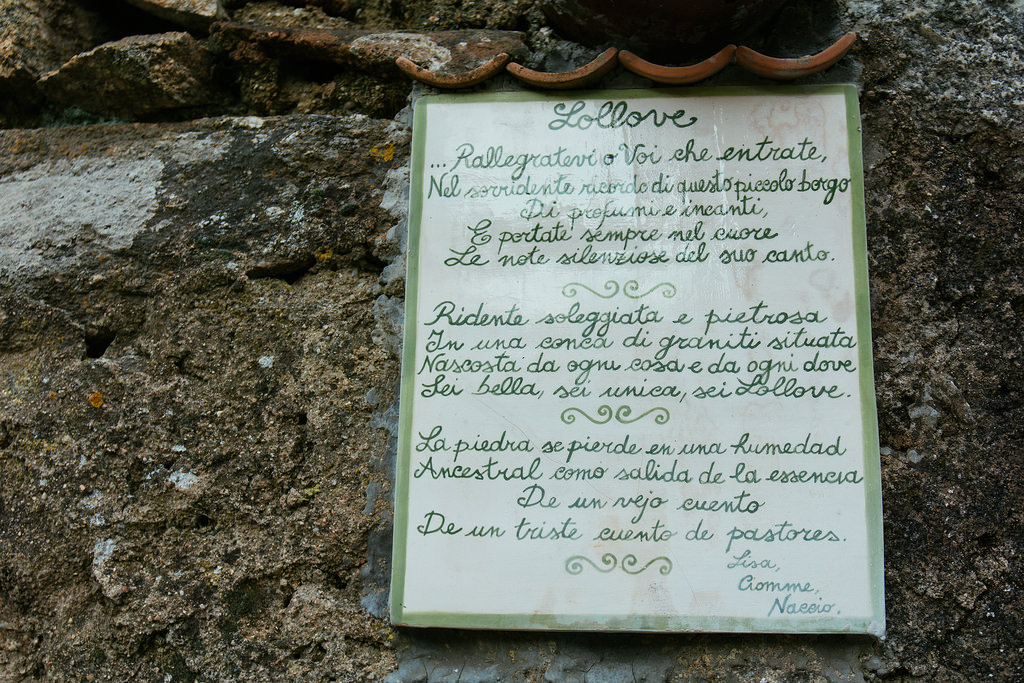 Lollove
... Rallegratevi o Voi che entrate,
Nel sorridente ricordo di questo piccolo borgo
Di profumi e incanti,
E portate sempre nel cuore
Le note silenziose del suo canto.
Ridente soleggiata e pietrosa
In una conca di graniti situata
Nascosta da ogni cosa e da ogni dove
Sei bella, sei unica, sei Lollove.
La piedra se pierde en una humedad
Ancestral como salida de la essencia
De un vejo cuento
De un triste cuento de pastores.
Lisa,
Ciomme,
Naccio.